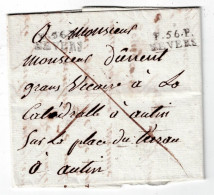 P.56.P.
NEVERS
P.56.P.
NEVERS
A Monsieur
monsieur
grand Vicaire à La
Cathédralle à autun
Sur La place du
à autun